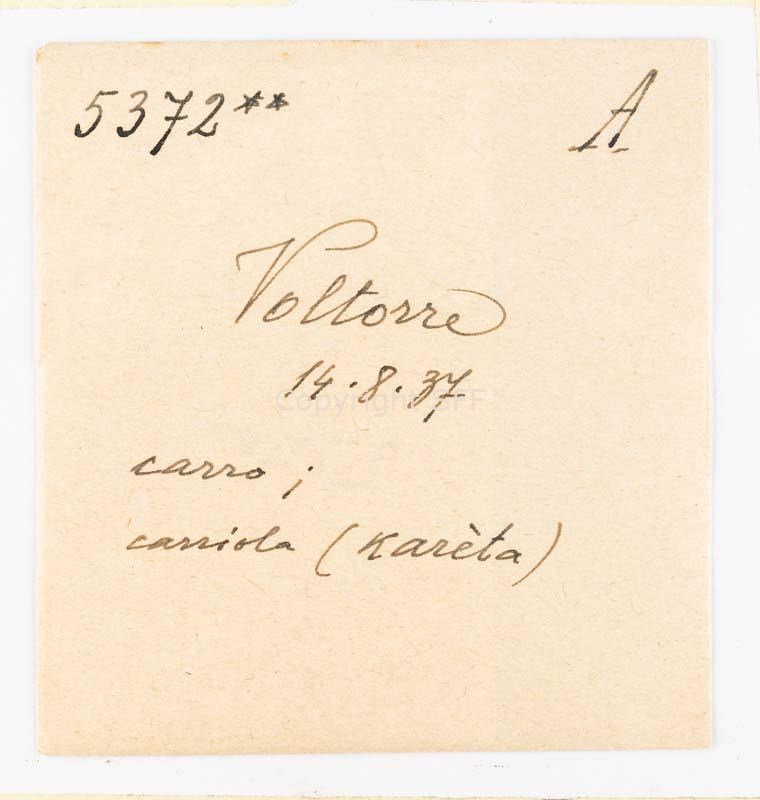 5372** A
Voltorre
14.8.37
Copyright SFF
carro;
carriola (karèta)